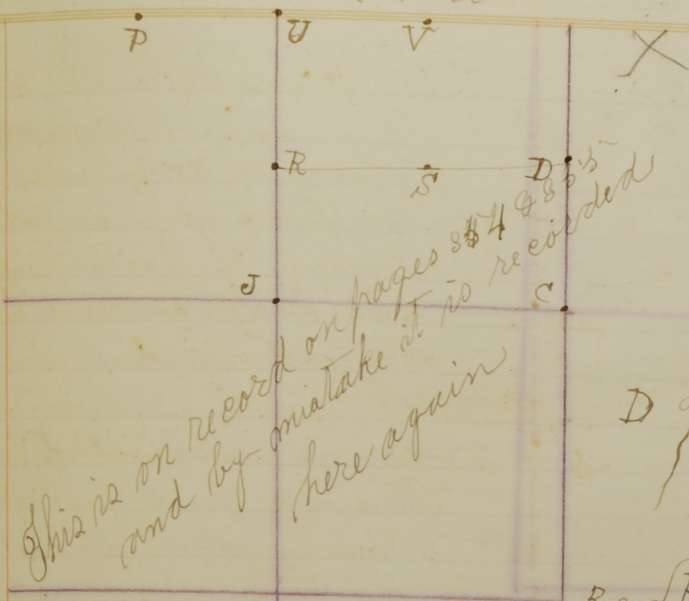 P U V X
R S D
J C
D
This is on record on pages 354 & 355
and by mistake it is recorded
here again